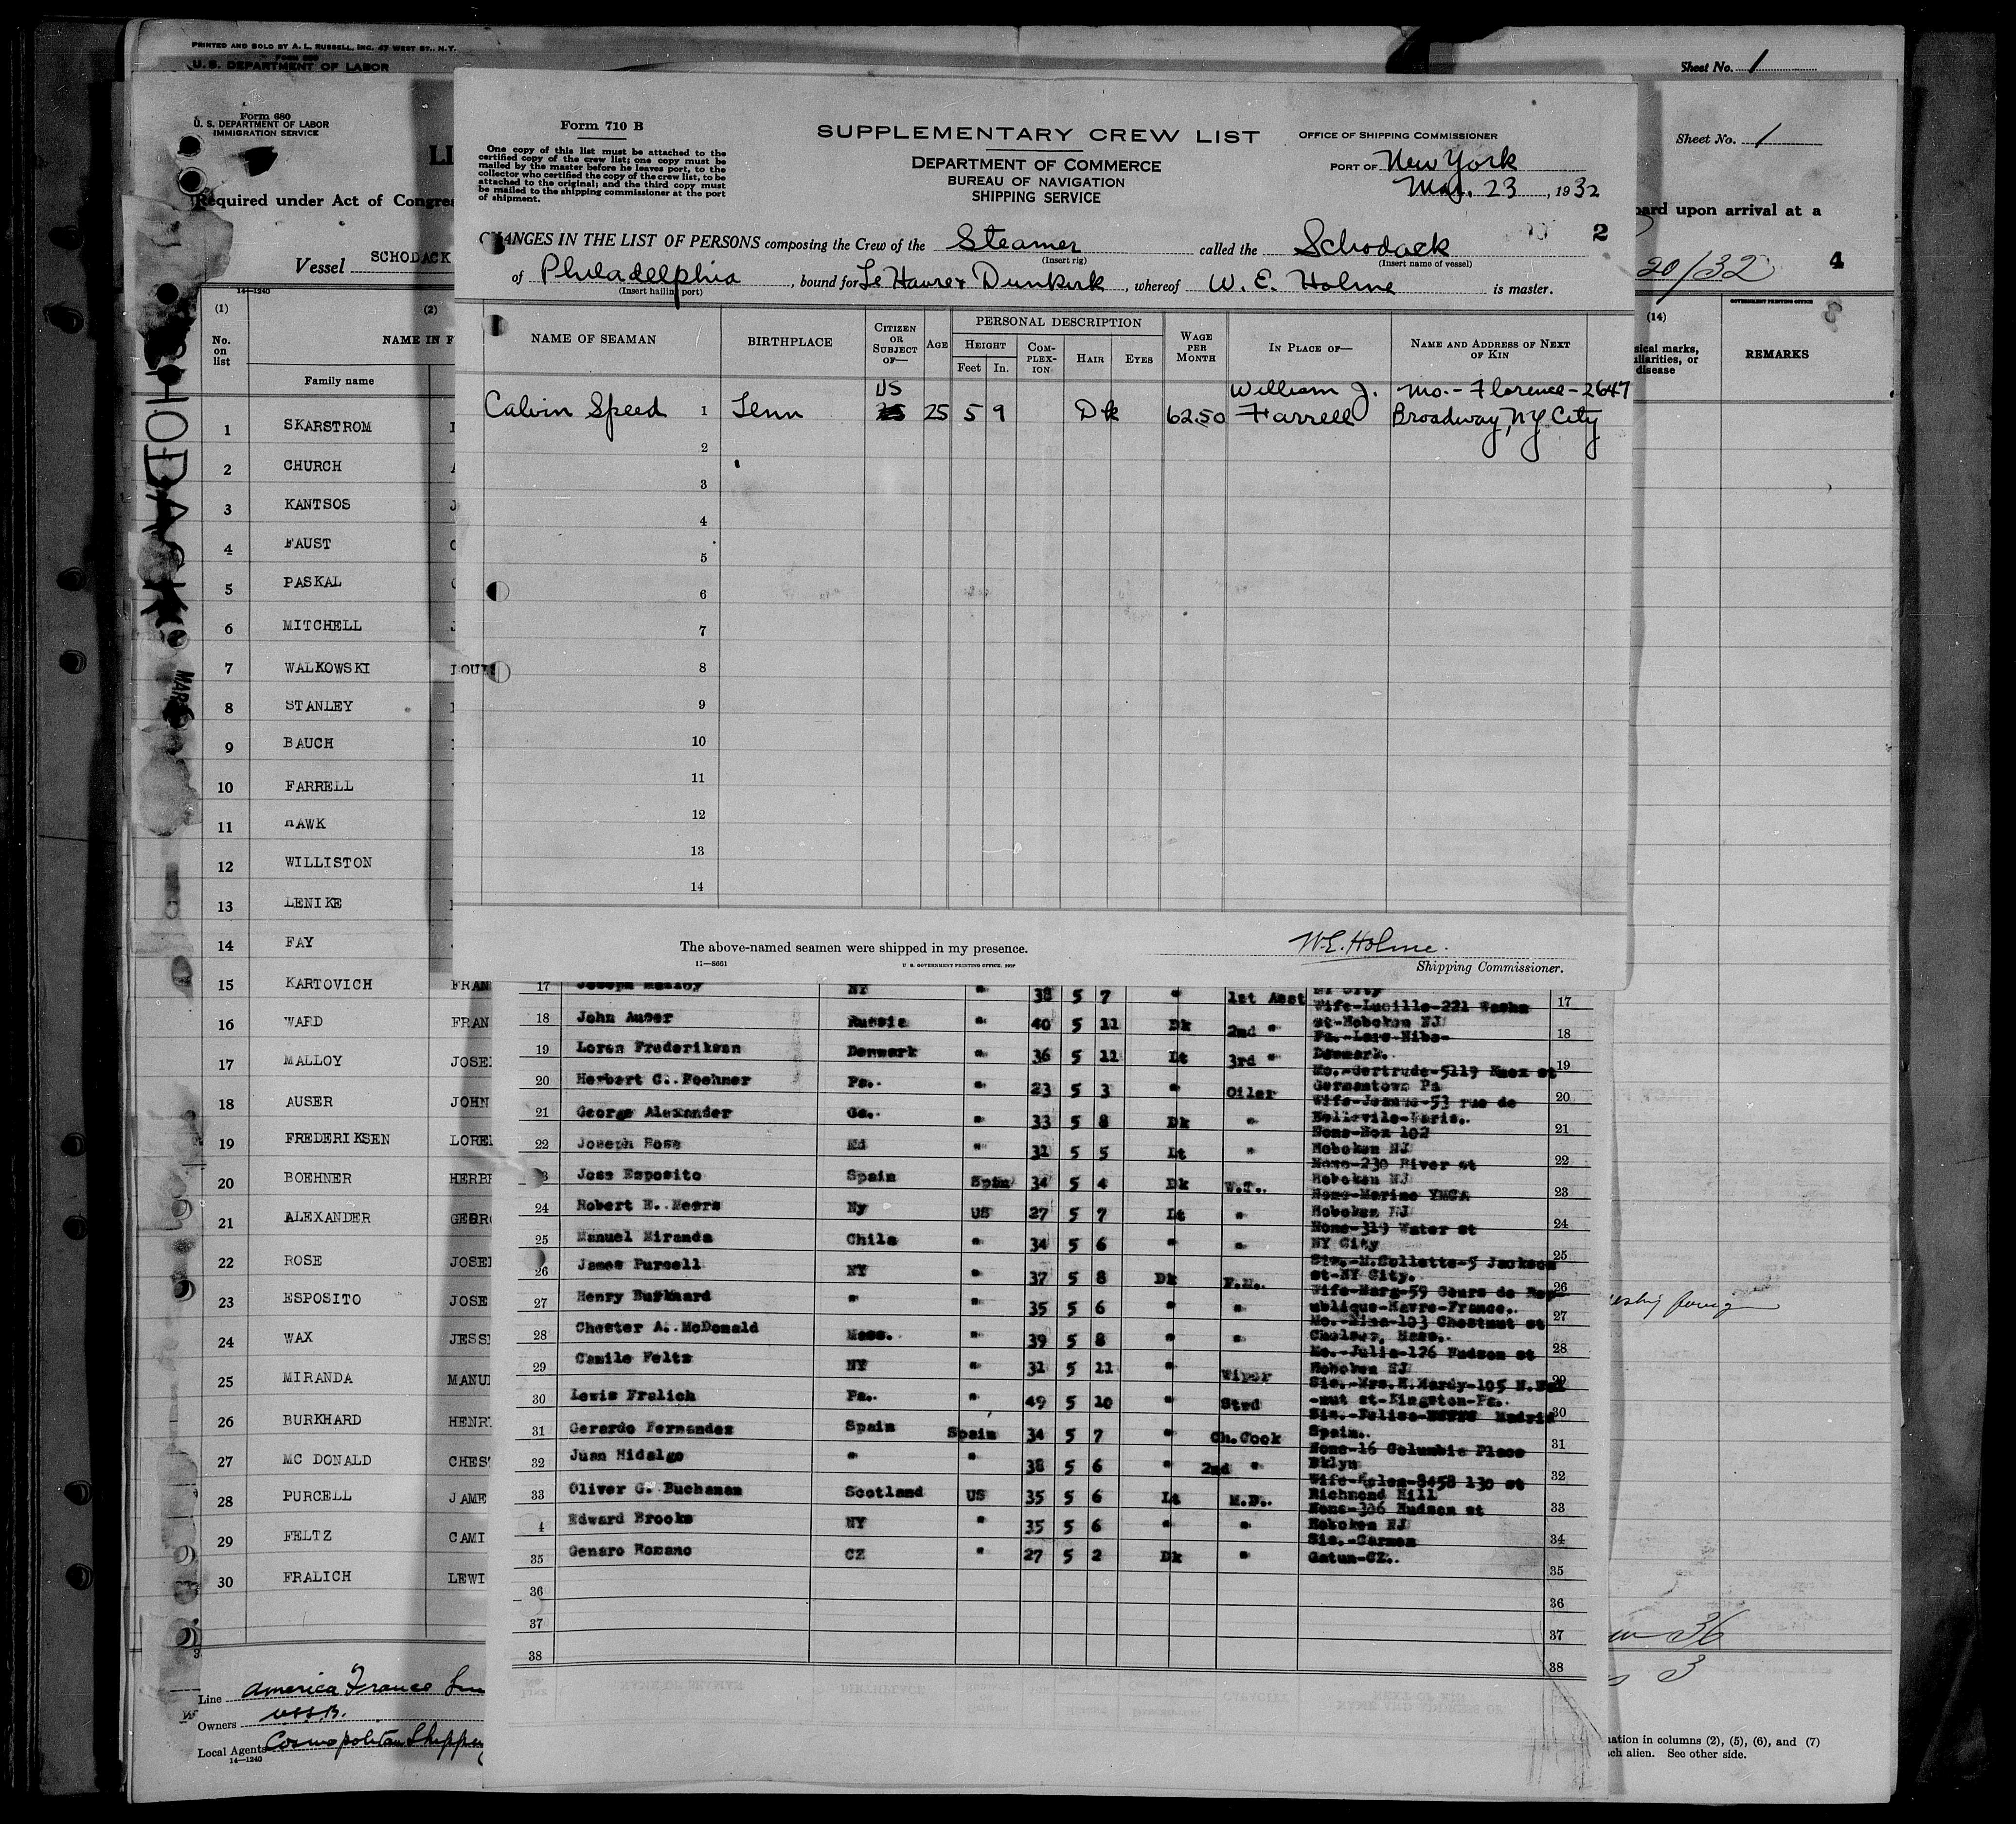 PRINTED AND SOLD BY A. L. RUSSELL, INC. 47 WEST ST., N.Y.
U. S. DEPARTMENT OF LABOR
Sheet No. 1
Form 680
U. S. DEPARTMENT OF LABOR
IMMIGRATION SERVICE
LI
Sheet No. 1
Required under Act of Congres
oard upon arrival at a
Vessel SCHODACK
20/32
4
14-1240
(1)
(2)
No. on list
NAME IN F
Family name
(14)
sical marks,
uliarities, or
disease
GOVERNMENT PRINTING OFFICE
REMARKS
SCHODACK
MAR
Form 710 B
One copy of this list must be attached to the
certified copy of the crew list; one copy must be
mailed by the master before he leaves port, to the
collector who certified the copy of the crew list, to be
attached to the original; and the third copy must
be mailed to the shipping commissioner at the port
of shipment.
SUPPLEMENTARY CREW LIST
DEPARTMENT OF COMMERCE
BUREAU OF NAVIGATION
SHIPPING SERVICE
OFFICE OF SHIPPING COMMISSIONER
PORT OF New York
Mar. 23, 1932
2
CHANGES IN THE LIST OF PERSONS composing the Crew of the Steamer called the Schodack
(Insert rig) (Insert name of vessel)
of Philadelphia, bound for Le Havre & Dunkirk, whereof W. E. Holme is master.
(Insert hailing port)
NAME OF SEAMAN
BIRTHPLACE
CITIZEN OR SUBJECT OF—
AGE
PERSONAL DESCRIPTION
HEIGHT
Feet In.
COMPLEXION
HAIR
EYES
WAGE PER MONTH
IN PLACE OF—
NAME AND ADDRESS OF NEXT OF KIN
US William J. Mo. - Florence - 2647
Calvin Speed 1 Tenn 25 5 9 Dk 62.50 Farrell Broadway, NY City
2
3
4
5
6
7
8
9
10
11
12
13
14
The above-named seamen were shipped in my presence.
W.E. Holme.
Shipping Commissioner.
11—8661
U. S. GOVERNMENT PRINTING OFFICE
1 SKARSTROM
2 CHURCH
3 KANTSOS
4 FAUST
5 PASKAL
6 MITCHELL
7 WALKOWSKI LOUIS
8 STANLEY
9 BAUCH
10 FARRELL
11 HAWK
12 WILLISTON
13 LENIKE
14 FAY
15 KARTOVICH FRAN
16 WARD FRAN
17 MALLOY JOSE
18 AUSER JOHN
19 FREDERIKSEN LORE
20 BOEHNER HERB
21 ALEXANDER GEOR
22 ROSE JOSE
23 ESPOSITO JOSE
24 WAX JESS
25 MIRANDA MANU
26 BURKHARD HENR
27 MC DONALD CHES
28 PURCELL JAME
29 FELTZ CAMI
30 FRALICH LEWI
17 Joseph Malloy NY " 38 5 7 " 1st Asst NY City 17
18 John Auser Russia " 40 5 11 Dk 2nd " Wife-Lucille-221 Washn st-Hoboken NJ 18
19 Loren Frederiksen Denmark " 36 5 11 Lt 3rd " Denmark. 19
20 Herbert C. Boehner Pa. " 23 5 3 " Oiler Mo.-Gertrude-5119 Knox st Germantown Pa 20
21 George Alexander Ga. " 33 5 8 Dk " Wife-Jeanne-53 rue de Belleville-Paris. 21
22 Joseph Rose Md " 31 5 5 Lt " None-Box 102 Hoboken NJ 22
23 Jose Esposito Spain Spain 34 5 4 Dk W.T. None-230 River st Hoboken NJ 23
24 Robert H. Meers Ny US 27 5 7 Lt " None-Marine YMCA Hoboken NJ 24
25 Manuel Miranda Chile " 34 5 6 " " None-319 Water st NY City 25
26 James Purcell NY " 37 5 8 Dk F.M. Sis.-M.Collette-5 Jackson st-NY City. 26
27 Henry Burkhard " " 35 5 6 " " Wife-Marg-59 Cours de Republique-Havre-France. 27
28 Chester A. McDonald Mass. " 39 5 8 " " 103 Chestnut st Chelsea, Mass. 28
29 Camile Feltz NY " 31 5 11 " Wiper Mo.-Julia-126 Hudson st Hoboken NJ 29
30 Lewis Fralich Pa. " 49 5 10 " Stwd Sis.-Mrs.M.Hardy-105 N.Wal-nut st-Kingston-Pa. 30
31 Gerardo Fernandez Spain Spain 34 5 7 " Ch.Cook Madrid Spain. 31
32 Juan Hidalgo " " 38 5 6 " 2nd " None-16 Columbia Place Bklyn 32
33 Oliver G. Buchanan Scotland US 35 5 6 Lt M.B. Wife-Helen-8458 130 st Richmond Hill 33
4 Edward Brooks NY " 35 5 6 " " None-306 Hudson st Hoboken NJ 34
35 Genaro Romano CZ " 27 5 2 Dk " Sis.-Carmen Gatun-CZ. 35
36 36
37 37
38 38
36
3
Line America France Line
Owners USSB.
Local Agents Cosmopolitan Shipping
14—1240
mation in columns (2), (5), (6), and (7)
ach alien. See other side.